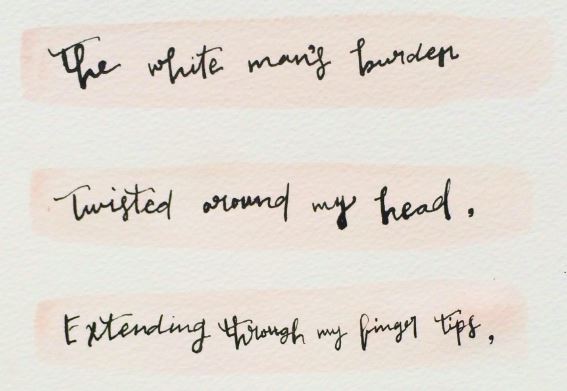 The white man's burden
Twisted around my head,
Extending through my finger tips,